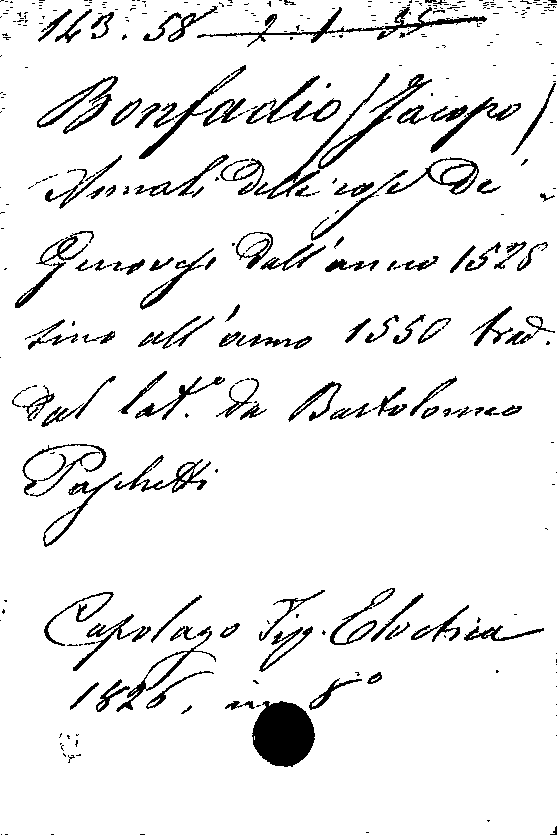 143. 58 2. 1. 35
Bonfadio (Jacopo)
Annali delle cose de'
Genovesi dall'anno 1528
sino all'anno 1550 trad.
dal lat.º da Bartolomeo
Paschetti
Capolago Tip. Elvetica
1826, in 8º